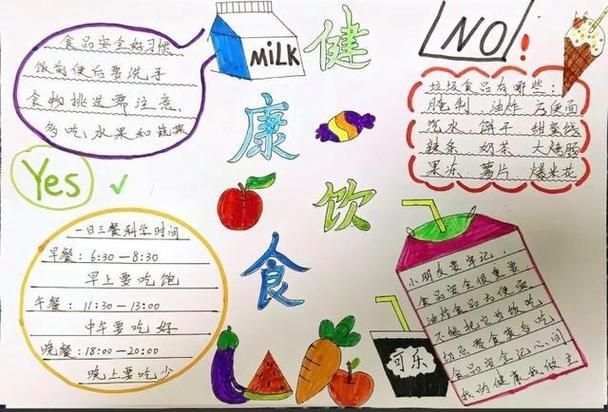 食品安全好习惯
饭前便后要洗手
食物挑选要注意
多吃水果和蔬菜
MiLK
健
康
饮
食
NO!
垃圾食品有哪些:
腌制 油炸 方便面
汽水 饼干 甜
辣条 奶茶 火腿肠
果冻 薯片 爆米花
Yes
一日三餐科学时间
早餐:6:30—8:30
早上要吃饱
午餐:11:30—13:00
中午要吃好
晚餐:18:00—20:00
晚上要吃少
可乐
小朋友要牢记,
食品安全很重要
油炸食品方便面
不能把它当饭吃
切忌零食莫多吃
食品安全记心间
我的健康我做主